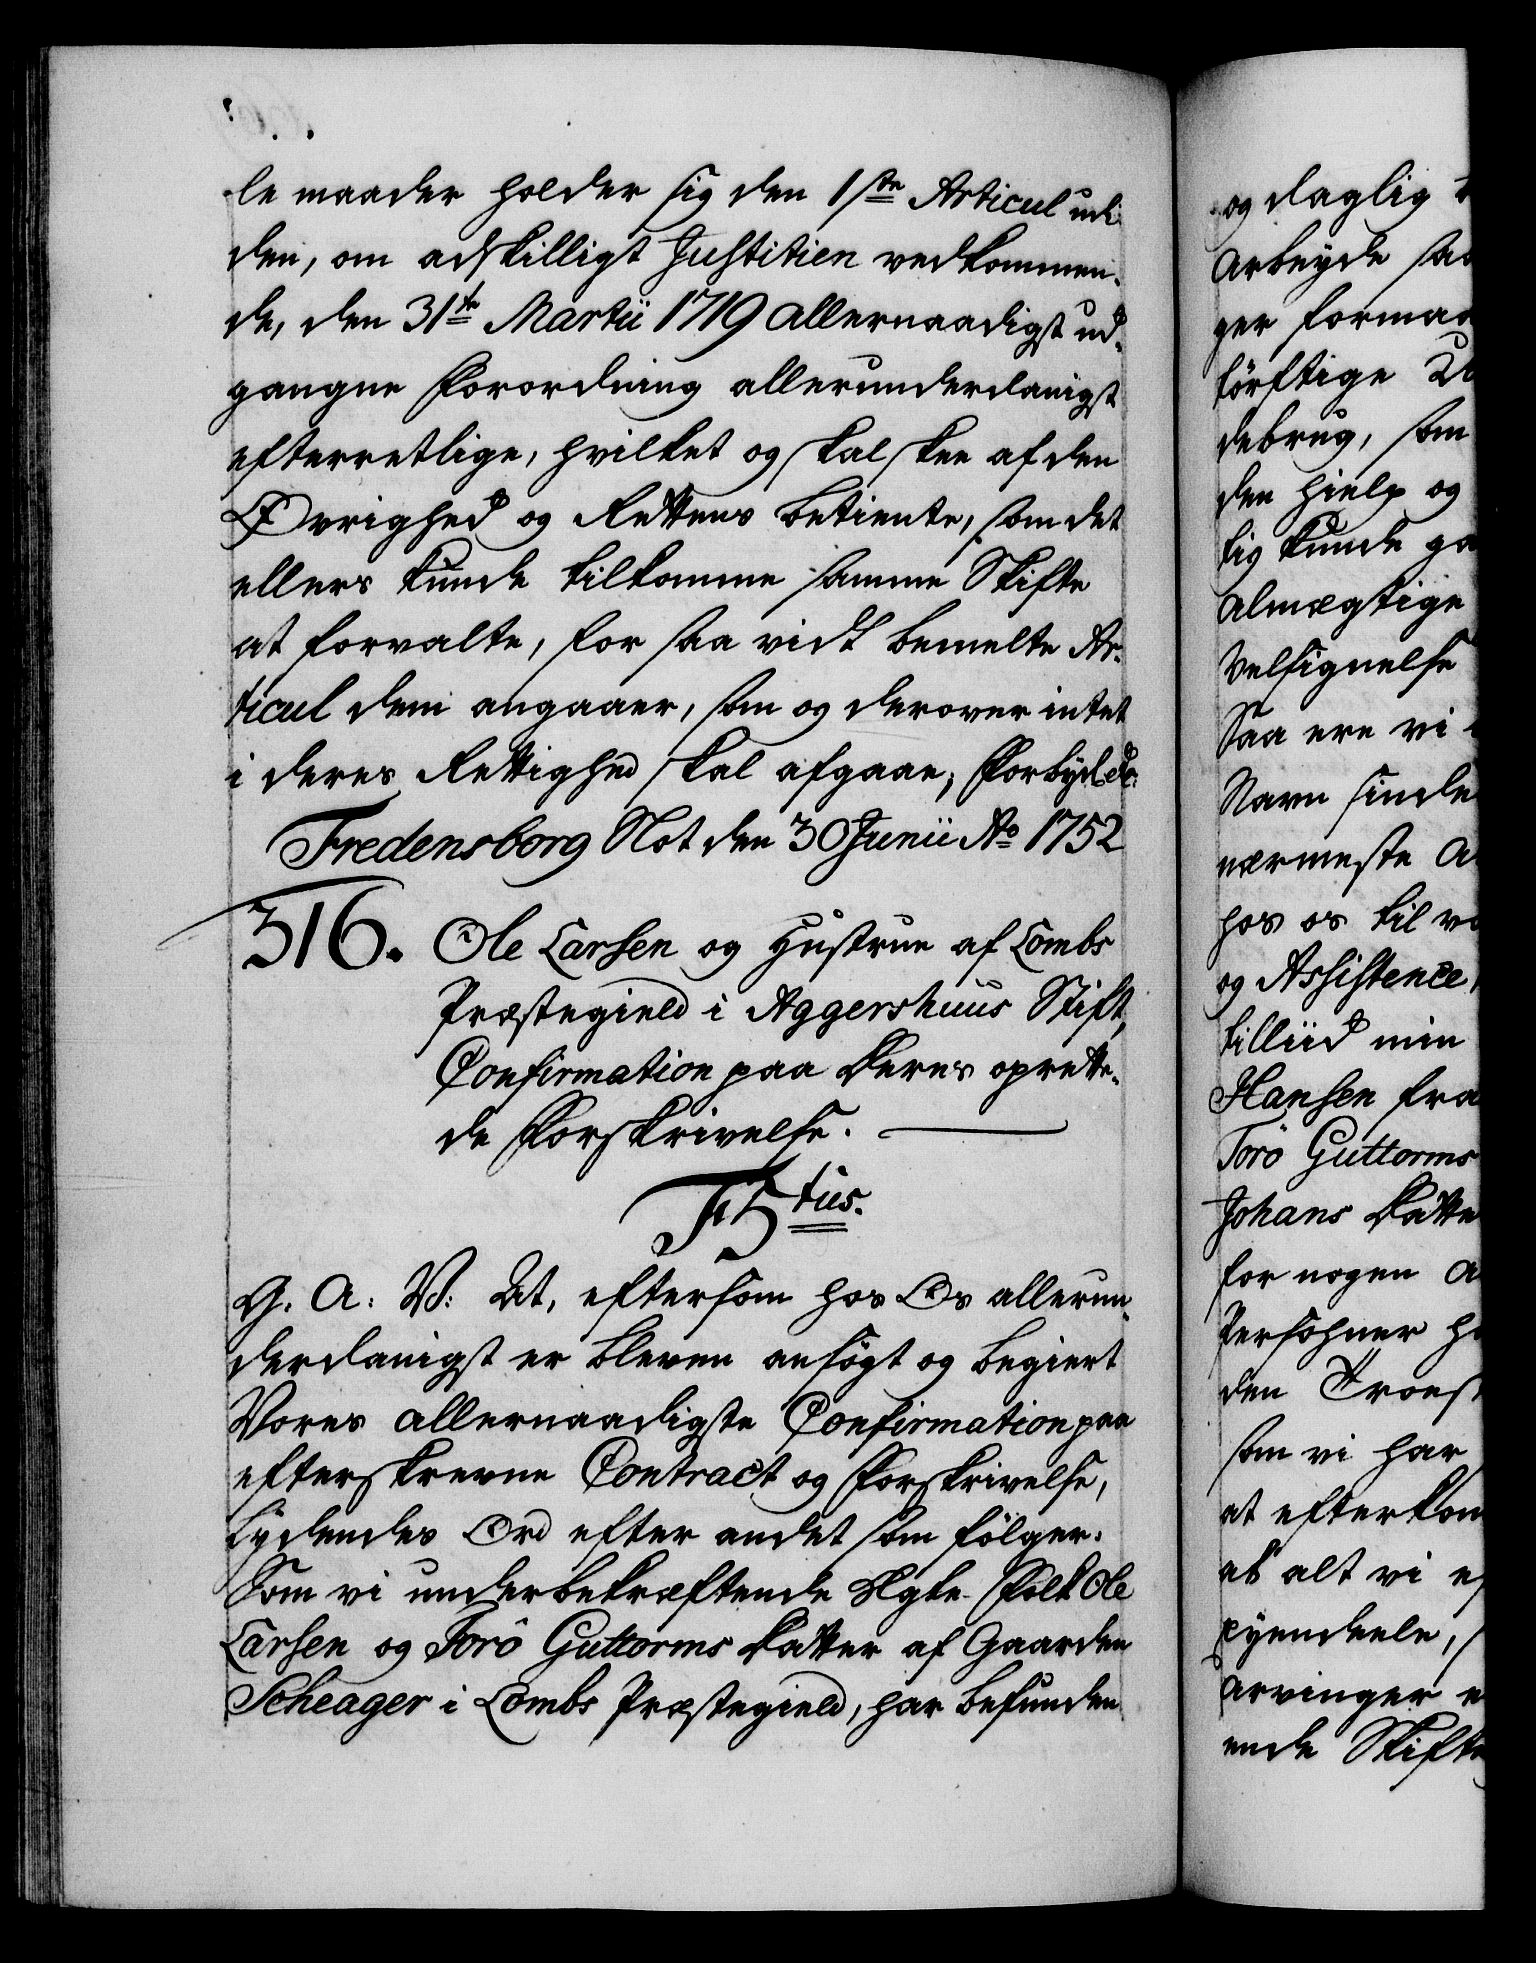 le maader holder sig den 1ste Articul udi
den, om adskilligt Justitien vedkommen-
de, den 31te Martii 1719 allernaadigst ud-
gangne Forordning allerunderdanigst
efterretlige, hvilket og skal skee af den
Øvrighed og Rettens betiente, som det
ellers kunde tilkomme samme Skifte
at forvalte, for saa vidt bemelte Ar-
ticul dem angaaer, som og derover intet
i deres Rettighed skal afgaae, Forbydende
Fredensborg Slot den 30 Junii Ao 1752
316. Ole Larsen og Hustrue af Lombs
Præstegield i Aggershuus Stift,
Confirmation paa deres oprette-
de Forskrivelse.
F5tus.
G. A: V: At, eftersom hos Os allerun-
derdanigst er bleven ansøgt og begiert
Vores allernaadigste Confirmation paa
efterskrevne Contract og Forskrivelse,
lydendes Ord efter andet som følger.
Som vi underbekræftende Ægte-Folk Ole
Larsen og Torö Guttorms Datter af Gaarden
Scheager i Lombs Præstegield, har befunden
og daglig
Arbeyde
ger
tørftige
debrug, som
den hielp og
tig kunde
Almægtige
Velsignelse
Saa ere vi
Navn sinde
nærmeste
hos os til
og Assistence
tilliid min
Hansen fra
Torö Guttorms
Johans Datte
for nogen
Persohner
den
som vi har
at efterkom
at alt vi
eyendeele,
Arvinger
ende Skifte